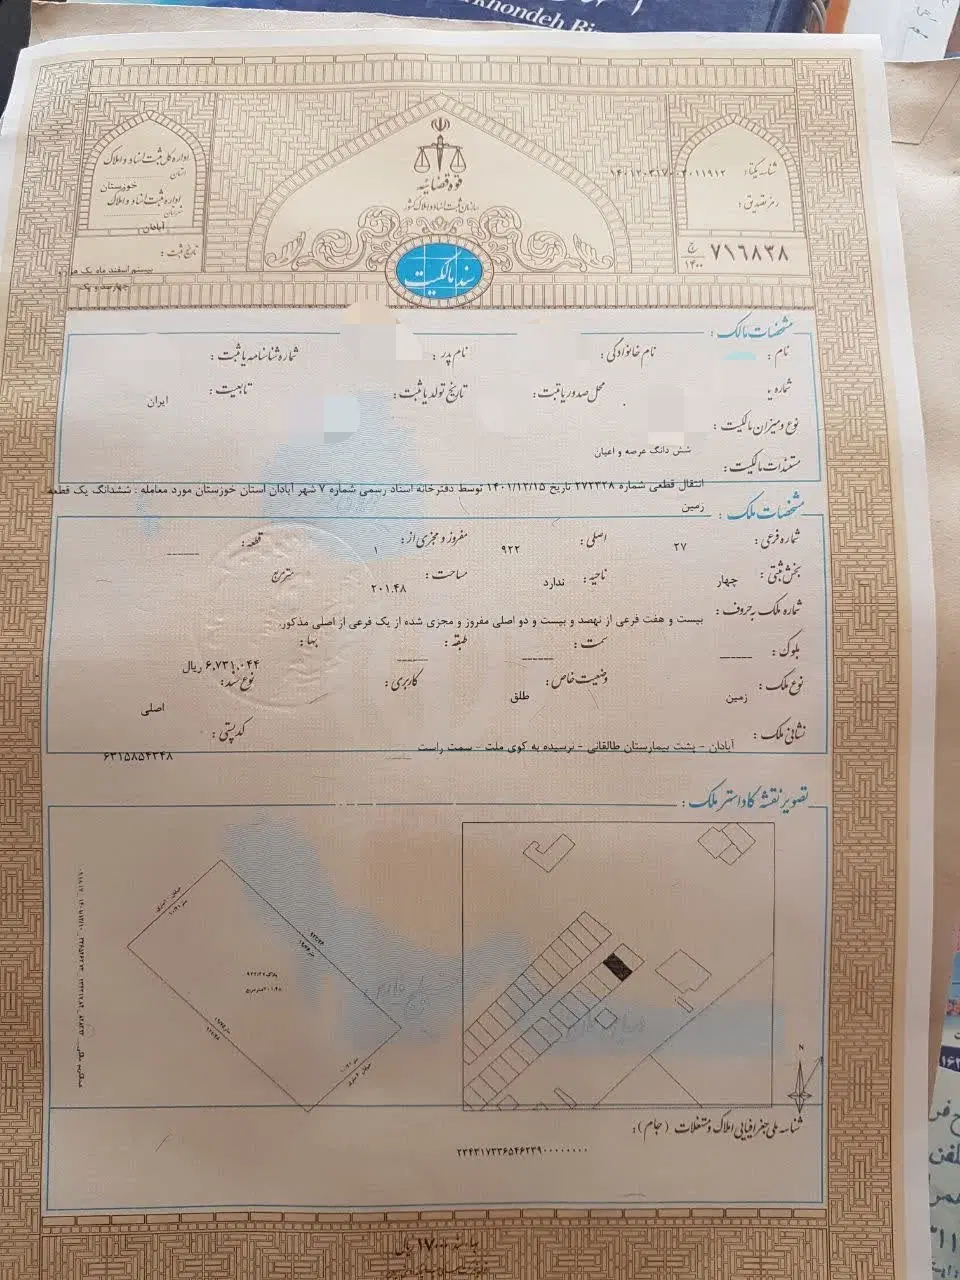 khondeh Bi
قوه قضائیه
سازمان ثبت اسناد و املاک کشور
اداره کل ثبت اسناد و املاک
استان
خوزستان
اداره ثبت اسناد و املاک
شهرستان
آبادان
تاریخ ثبت :
بیستم اسفند ماه یک هزار و
چهارصد و یک
شناسه یکتا:
رمز تصدیق :
۷۱۶۸۳۸
ج
۱۴۰۰
سند مالکیت
مشخصات مالک :
نام : نام خانوادگی : نام پدر : شماره شناسنامه یا ثبت :
شماره محل صدور یا ثبت : تاریخ تولد یا ثبت : تابعیت : ایران
نوع و میزان مالکیت :
شش دانگ عرصه و اعیان
مستندات مالکیت :
انتقال قطعی شماره ۲۷۲۳۲۸ تاریخ ۱۴۰۱/۱۲/۱۵ توسط دفترخانه اسناد رسمی شماره ۷ شهر آبادان استان خوزستان مورد معامله : ششدانگ یک قطعه
زمین
مشخصات ملک :
شماره فرعی : ۲۷ اصلی : ۹۲۲ مفروز و مجزی از : ۱ قطعه : ------
بخش ثبتی : چهار ناحیه : ندارد مساحت : ۲۰۱.۴۸ متر مربع
شماره ملک به حروف :
بیست و هفت فرعی از نهصد و بیست و دو اصلی مفروز و مجزی شده از یک فرعی از اصلی مذکور.
بلوک : ------ سمت : ------ طبقه : ------ بها : ۶,۷۳۱,۰۴۴ ریال
نوع ملک : زمین وضعیت خاص : طلق کاربری : نوع سند : اصلی
نشانی ملک :
آبادان - پشت بیمارستان طالقانی - نرسیده به کوی ملت - سمت راست
کد پستی : ۶۳۱۵۸۵۴۳۴۸
تصویر نقشه کاداستر ملک :
N
شناسه ملی جغرافیایی املاک و مستغلات (جام) :
۲۳۴۳۱۷۳۳۶۵۴۶۲۳۹۰۰۰۰۰۰۰۰